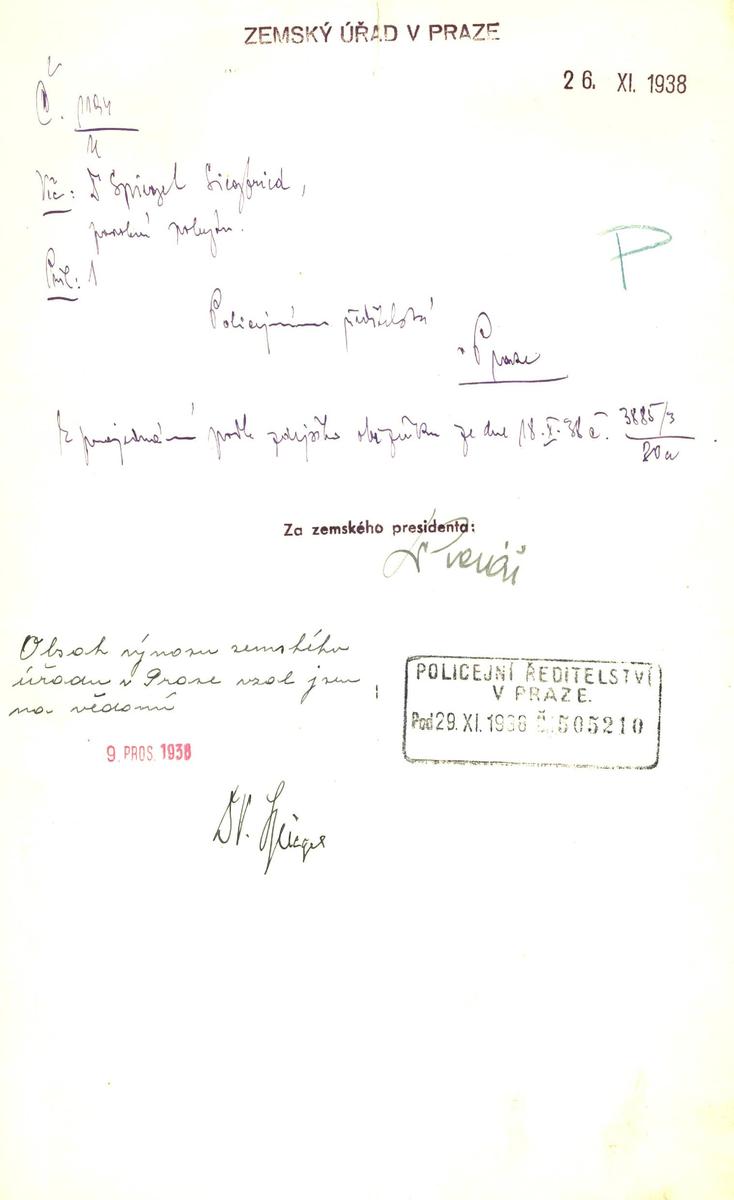 ZEMSKÝ ÚŘAD V PRAZE
26. XI. 1938
Č.
Věc: Dr Spiegel Siegfried,
povolení pobytu.
Příl: 1
P
Policejnímu ředitelství
v Praze
K projednání podle zdejšího oběžníku ze dne 18.X.38 č. 3885/3
20a
Za zemského presidenta:
Obsah výnosu zemského
úřadu v Praze vzal jsem
na vědomí
POLICEJNÍ ŘEDITELSTVÍ
V PRAZE.
Pod 29. XI. 1938 Č. 505210
9. PROS. 1938
Dr. Spiegel